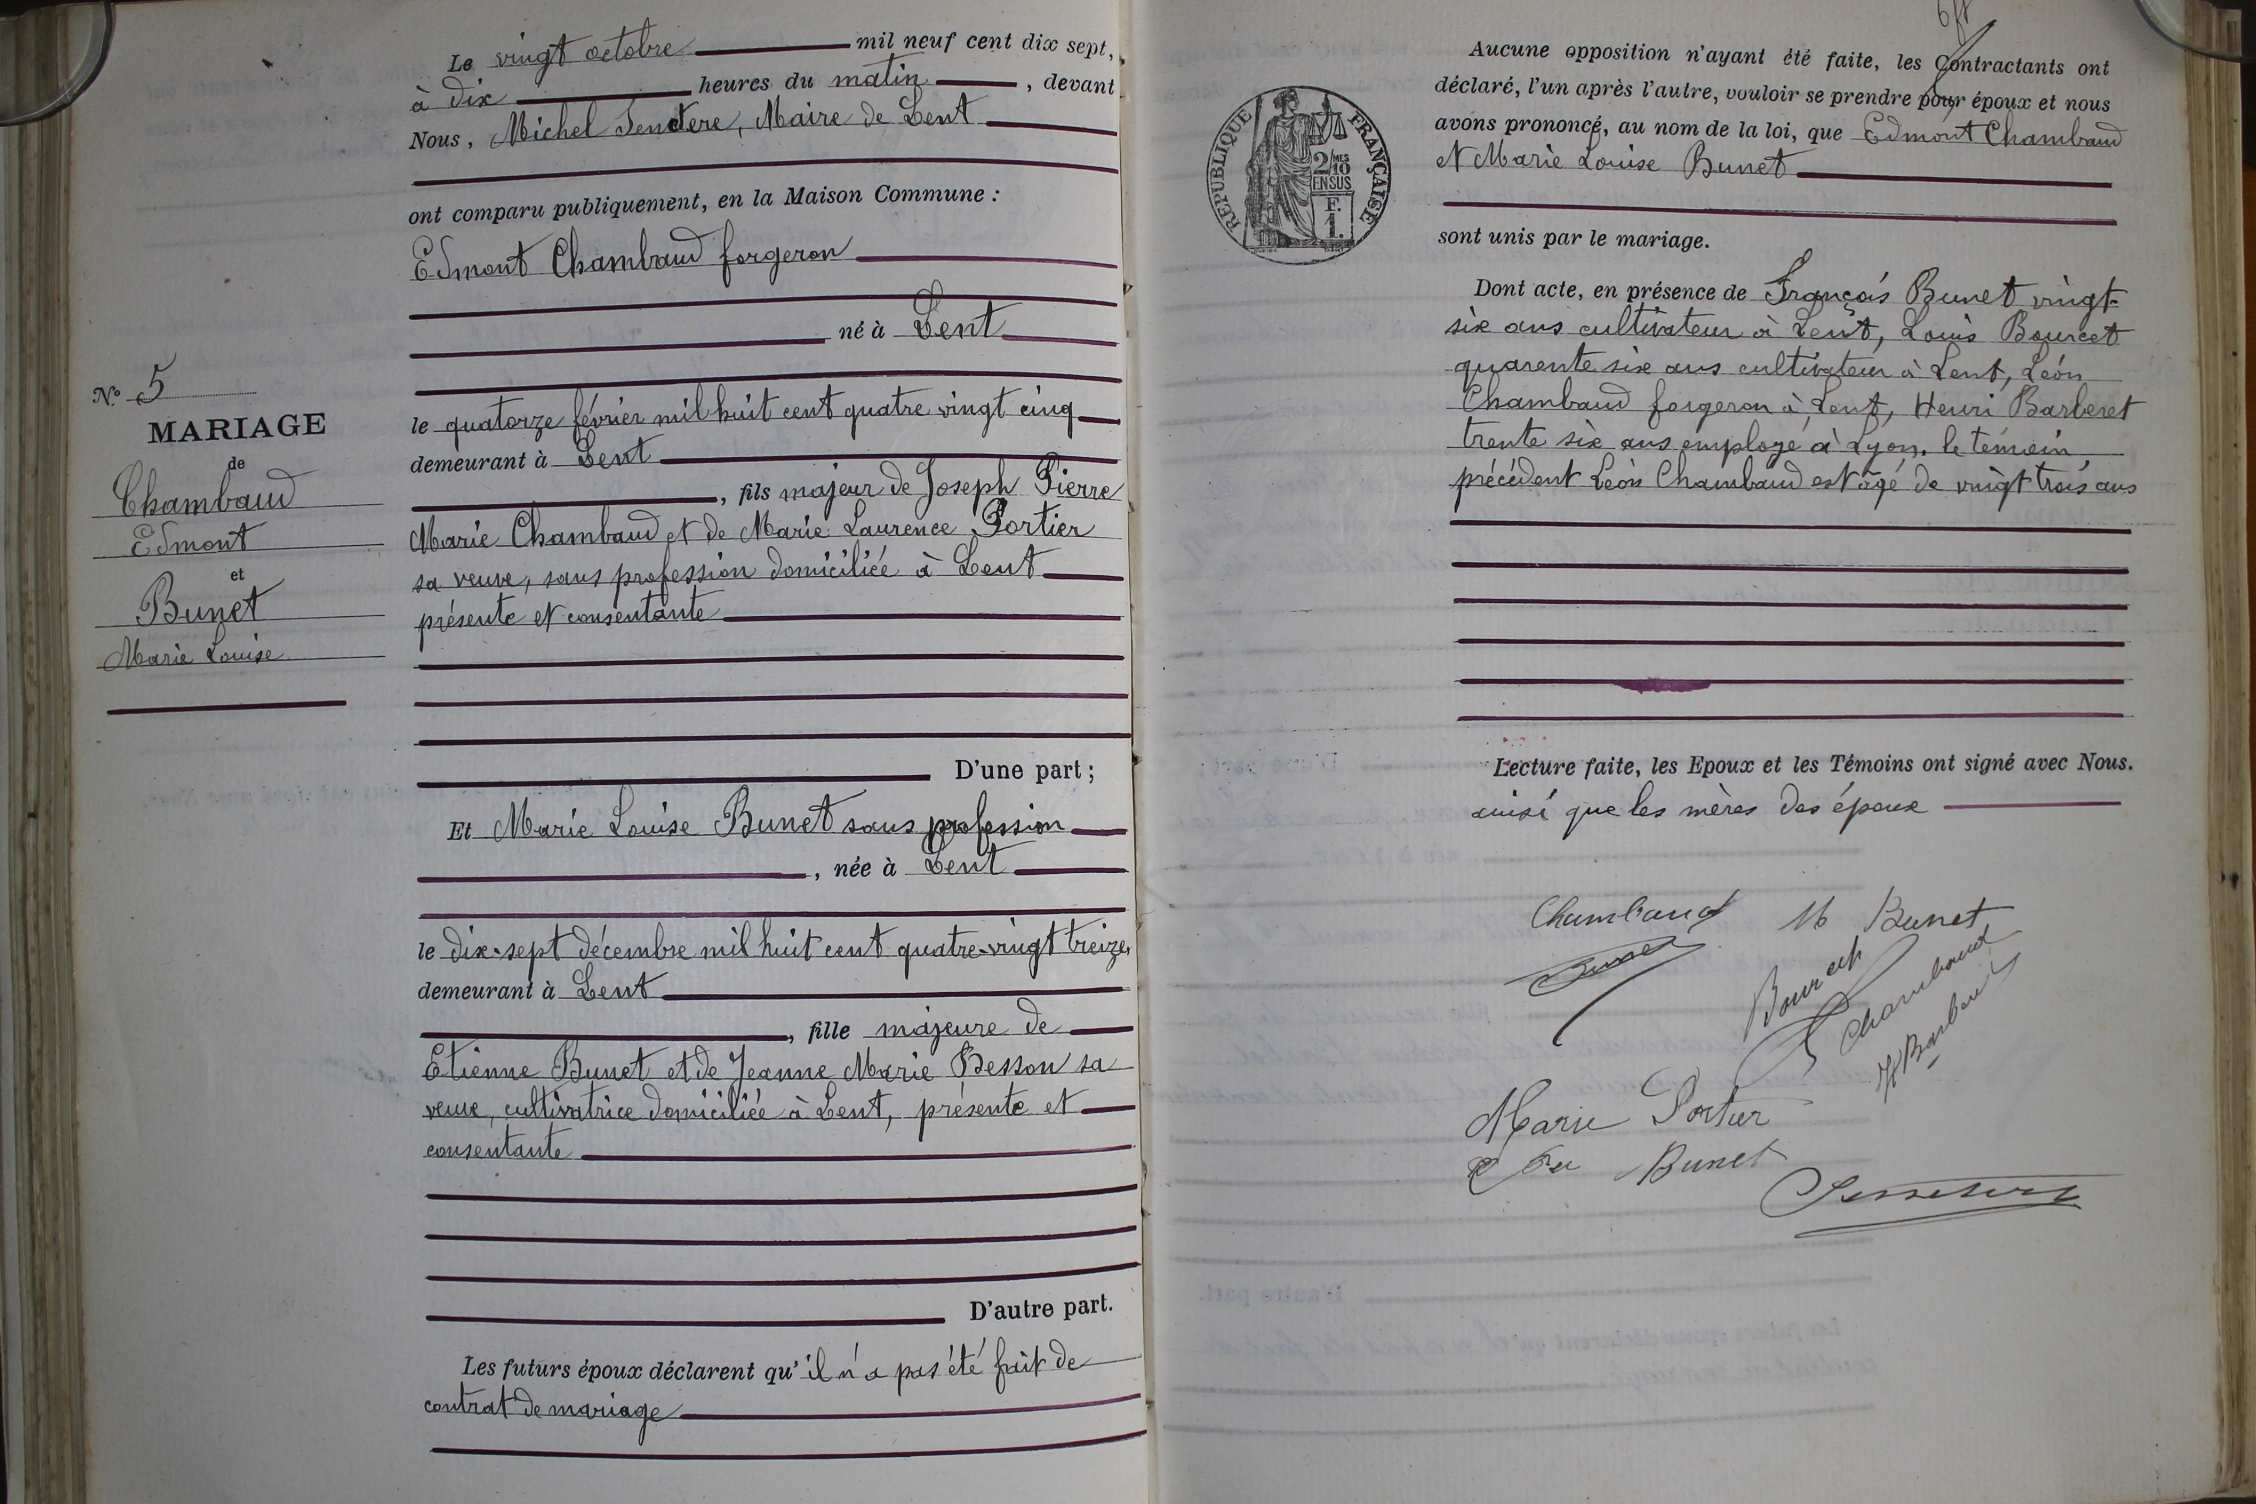 N.º 5
MARIAGE
de
Chambaud
Edmont
et
Bunet
Marie Louise
Le vingt octobre mil neuf cent dix sept,
à dix heures du matin, devant
Nous, Michel Tendere, Maire de Lent
ont comparu publiquement, en la Maison Commune :
Edmont Chambaud forgeron
né à Lent
le quatorze février mil huit cent quatre vingt cinq
demeurant à Lent
, fils majeur de Joseph Pierre
Marie Chambaud et de Marie Laurence Portier
sa veuve, sans profession domiciliée à Lent
présente et consentante
D'une part ;
Et Marie Louise Bunet sans profession
, née à Lent
le dix-sept décembre mil huit cent quatre-vingt treize,
demeurant à Lent
, fille majeure de
Etienne Bunet et de Jeanne Marie Besson sa
veuve, cultivatrice domiciliée à Lent, présente et
consentante
D'autre part.
Les futurs époux déclarent qu'il n'a pas été fait de
contrat de mariage
REPUBLIQUE FRANÇAISE
2/10 MES
EN SUS
F.
1.
Aucune opposition n'ayant été faite, les Contractants ont
déclaré, l'un après l'autre, vouloir se prendre pour époux et nous
avons prononcé, au nom de la loi, que Edmont Chambaud
et Marie Louise Bunet
sont unis par le mariage.
Dont acte, en présence de François Bunet vingt-
six ans cultivateur à Lent, Louis Bourcet
quarente six ans cultivateur à Lent, Léon
Chambaud forgeron à Lent, Henri Barberet
trente six ans employé à Lyon. le témoin
précédent Léon Chambaud est âgé de vingt trois ans
Lecture faite, les Epoux et les Témoins ont signé avec Nous.
ainsi que les mères des époux
Chambaud M Bunet
Bunet
Bourcet
Chambaud
H Barberet
Marie Portier
Bunet